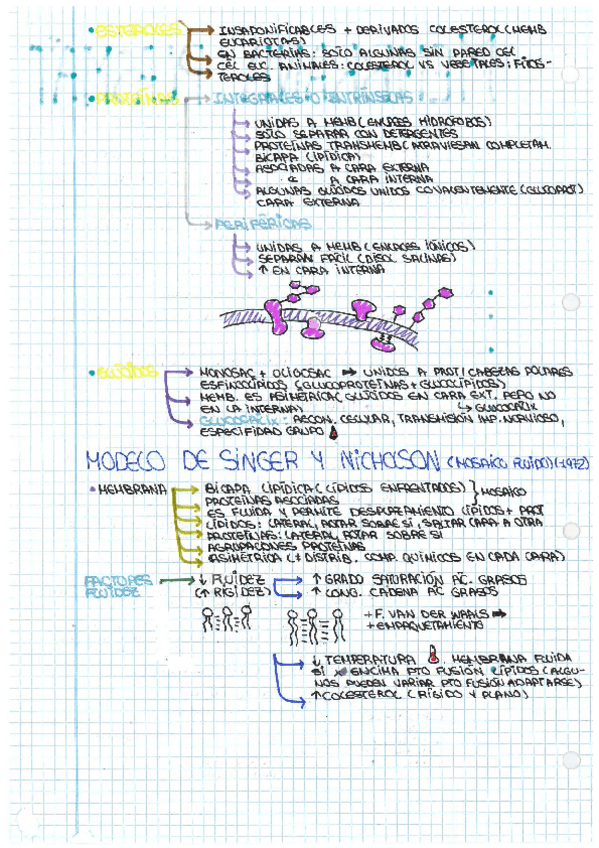 • ESTEROLES INSAPONIFICABLES + DERIVADOS COLESTEROL (MEMB
EUCARIOTAS)
EN BACTERIAS: SOLO ALGUNAS SIN PARED CEL
CÉL EUC. ANIMALES: COLESTEROL VS VEGETALES: FITOS-
TEROLES
• PROTEÍNAS INTEGRALES O INTRÍNSECAS
UNIDAS A MEMB (ENLACES HIDRÓFOBOS)
SOLO SEPARAR CON DETERGENTES
PROTEÍNAS TRANSMEMB (ATRAVIESAN COMPLETAM.
BICAPA LIPÍDICA)
ASOCIADAS A CARA EXTERNA
" A CARA INTERNA
ALGUNAS GLÚCIDOS UNIDOS COVALENTEMENTE (GLUCOPROT)
CARA EXTERNA
PERIFÉRICAS
UNIDAS A MEMB (ENLACES IÓNICOS)
SEPARAN FÁCIL (DISOL SALINAS)
↑ EN CARA INTERNA
• GLÚCIDOS MONOSAC + OLIGOSAC → UNIDOS A PROT/CABEZAS POLARES
ESFINGOLÍPIDOS (GLUCOPROTEÍNAS + GLUCOLÍPIDOS)
MEMB. ES ASIMÉTRICA (GLÚCIDOS EN CARA EXT. PERO NO
EN LA INTERNA) ↳ GLUCOCÁLIX
GLUCOCÁLIX: RECON. CELULAR, TRANSMISIÓN IMP. NERVIOSO,
ESPECIFIDAD GRUPO
MODELO DE SINGER Y NICHOLSON (MOSAICO FLUIDO) (1972)
• MEMBRANA BICAPA LIPÍDICA (LÍPIDOS ENFRENTADOS)
PROTEÍNAS ASOCIADAS } MOSAICO
ES FLUIDA Y PERMITE DESPLAZAMIENTO LÍPIDOS + PROT
LÍPIDOS: LATERAL, ROTAR SOBRE SÍ, SALTAR CARA A OTRA
PROTEÍNAS: LATERAL, ROTAR SOBRE SÍ
AGRUPACIONES PROTEÍNAS
ASIMÉTRICA (≠ DISTRIB. COMP. QUÍMICOS EN CADA CARA)
FACTORES FLUIDEZ ↓ FLUIDEZ (↑ RIGIDEZ) ↑ GRADO SATURACIÓN ÁC. GRASOS
↑ LONG. CADENA ÁC GRASOS
+ F. VAN DER WAALS →
+ EMPAQUETAMIENTO
↓ TEMPERATURA. MEMBRANA FLUIDA
SI ENCIMA PTO FUSIÓN LÍPIDOS (ALGU-
NOS PUEDEN VARIAR PTO FUSIÓN ADAPTARSE)
↑ COLESTEROL (RÍGIDO Y PLANO)